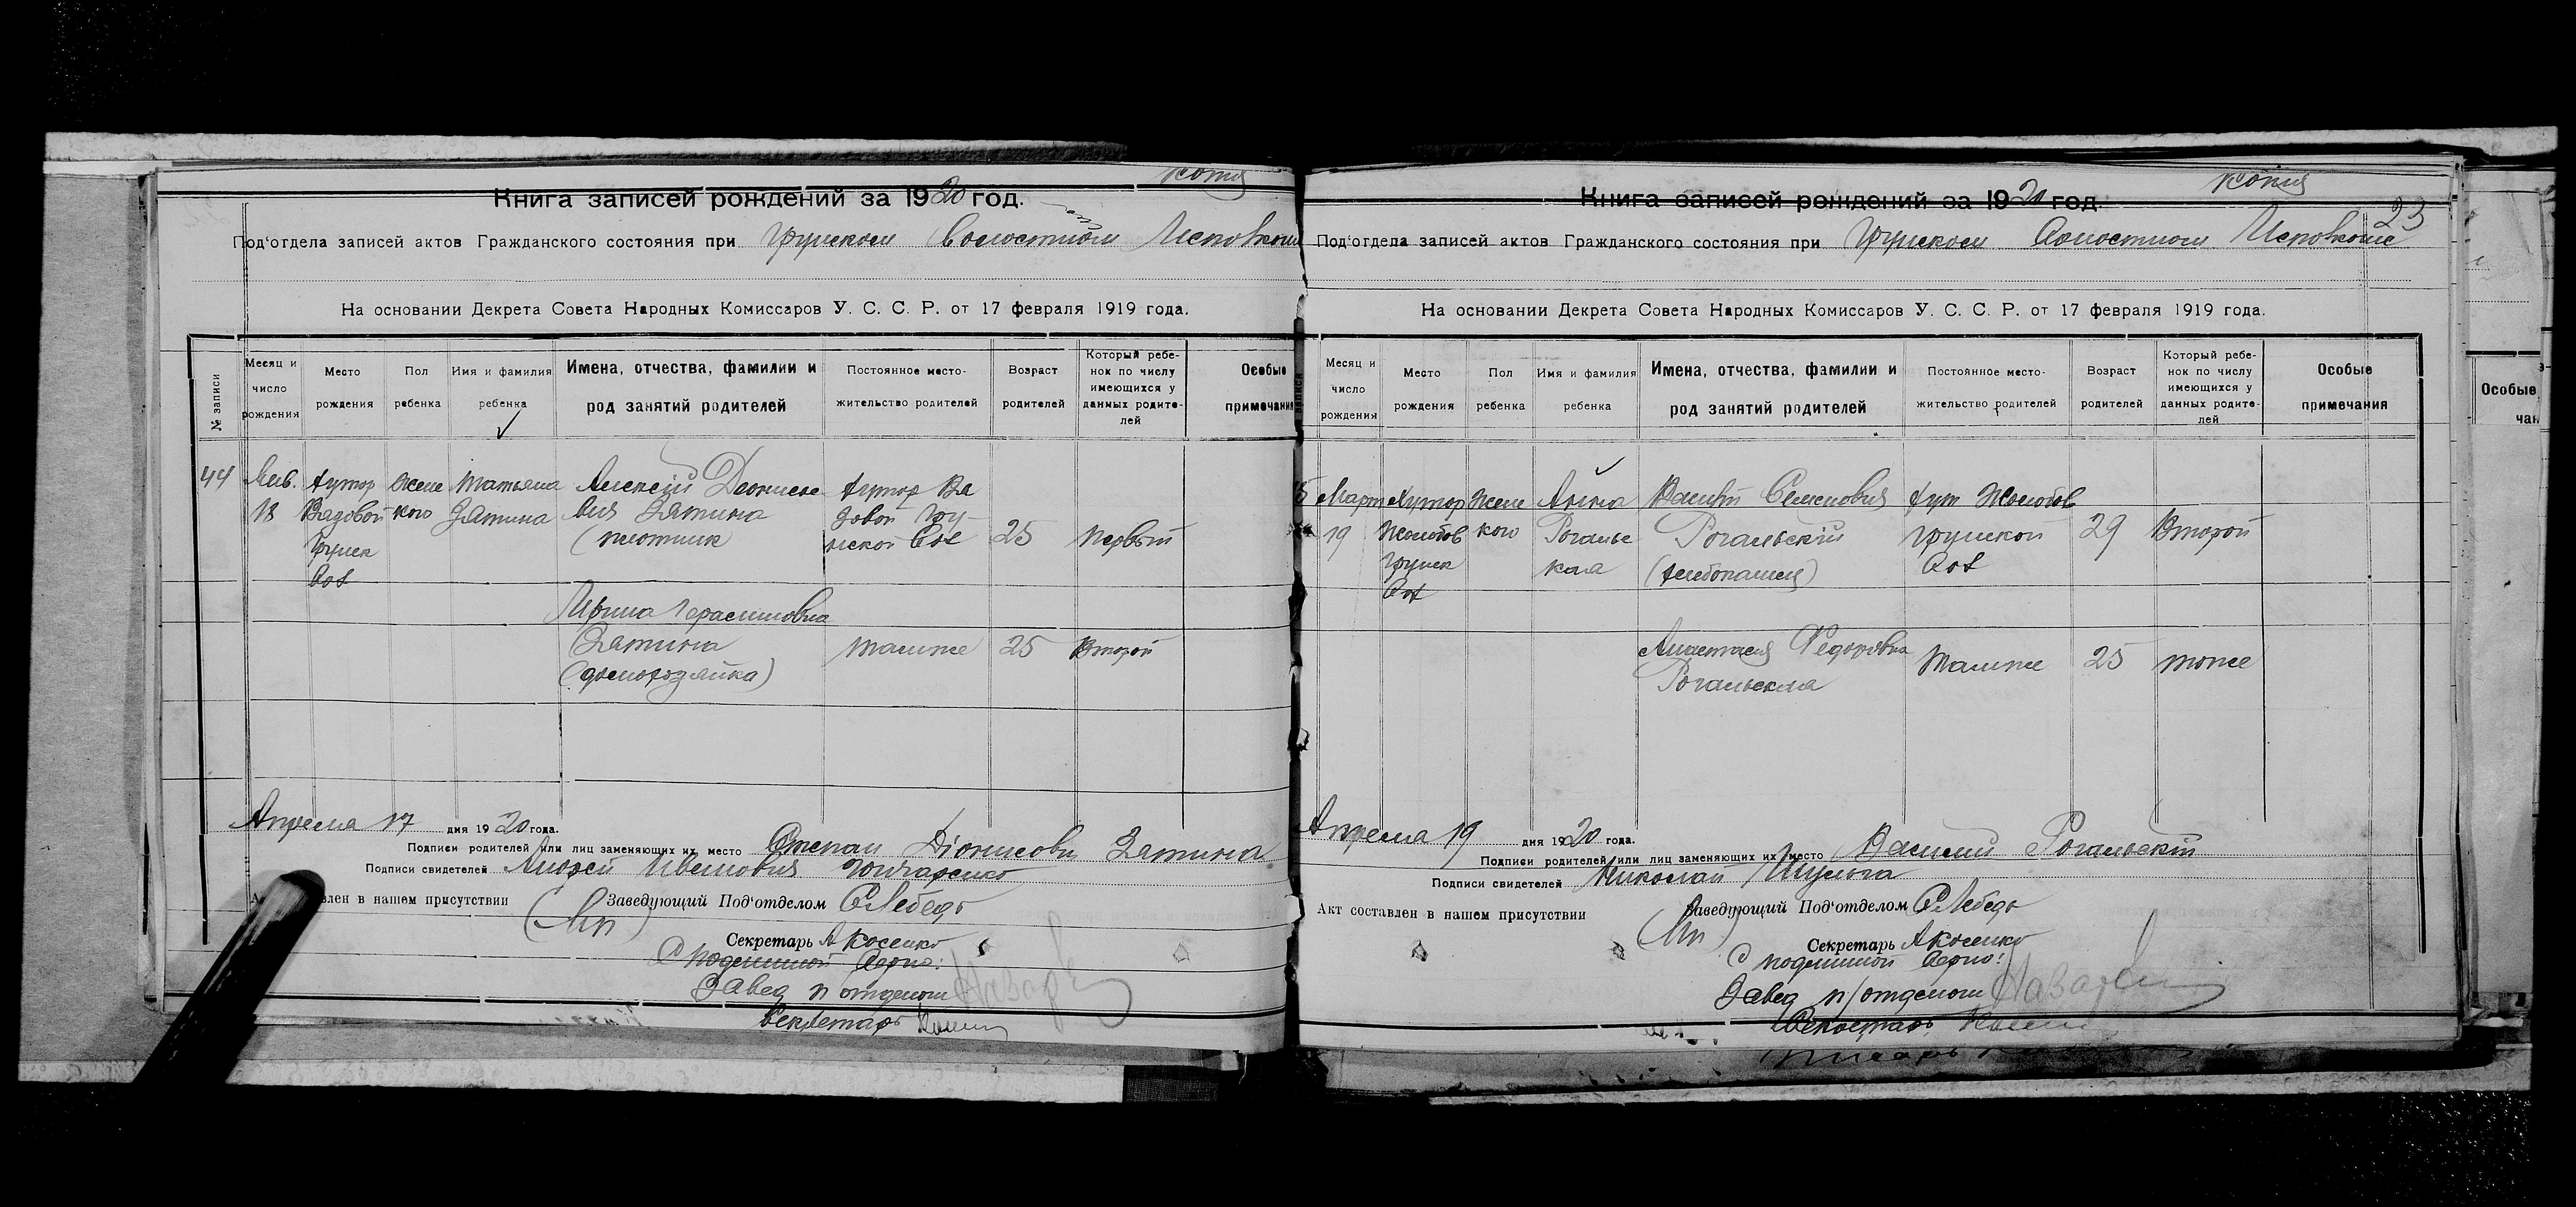 копия
Книга записей рождений за 1920 год.
Под'отдела записей актов Гражданского состояния при Грунском Волостном Исполкоме
На основании Декрета Совета Народных Комиссаров У. С. С. Р. от 17 февраля 1919 года.
№ записи
Месяц и число рождения
Место рождения
Пол ребенка
Имя и фамилия ребенка
Имена, отчества, фамилии и род занятий родителей
Постоянное место-жительство родителей
Возраст родителей
Который ребе-нок по числу имеющихся у данных родите-лей
Особые примечания
44
Янв. 18
Хутор
Грунск
Вол
Жене
кого
Татьяна
Зятина
Алексей Деонисье
вич Зятина
(плотник
хутор Вя
зовой Гру-
нской Вол
25
Первый
Ирина Герасимовна
Зятина
(домохозяйка)
та́мже
25
Второй
Апреля 17 дня 1920 года.
Подписи родителей или лиц заменяющих их место Степан Діонисови Зятина
Подписи свидетелей Андрей Иванович Гончаренко
Заведующий Под'отделом С Лебедь
(Мп)
Секретарь А Косенко
С подлинной верно:
Завед п отделом
Секретарь
копия
23
Книга записей рождений за 1920 год.
Под'отдела записей актов Гражданского состояния при Грунском Волостном Исполкоме
На основании Декрета Совета Народных Комиссаров У. С. С. Р. от 17 февраля 1919 года.
Месяц и число рождения
Место рождения
Пол ребенка
Имя и фамилия ребенка
Имена, отчества, фамилии и род занятий родителей
Постоянное место-жительство родителей
Возраст родителей
Который ребе-нок по числу имеющихся у данных родите-лей
Особые примечания
5
Март
19
Хутор
Жолобов
Грунск
Вол
Жене
кого
Анна
Рогальс
кая
Василий Семенович
Рогальскій
(хлебопашец)
хут Жолобов
Грунской
Вол
29
Второй
Анастасия Федоровна
Рогальская
Тамже
25
тоже
Апреля 19 дня 1920 года.
Подписи родителей или лиц заменяющих их место Василий Рогальскій
Подписи свидетелей Николай Шульга
Акт составлен в нашем присутствии
Заведующий Под'отделом С Лебедь
(Мп)
Секретарь А Косенко
С подлинной верно:
Завед п/отделом
Секретарь
Особые
чан